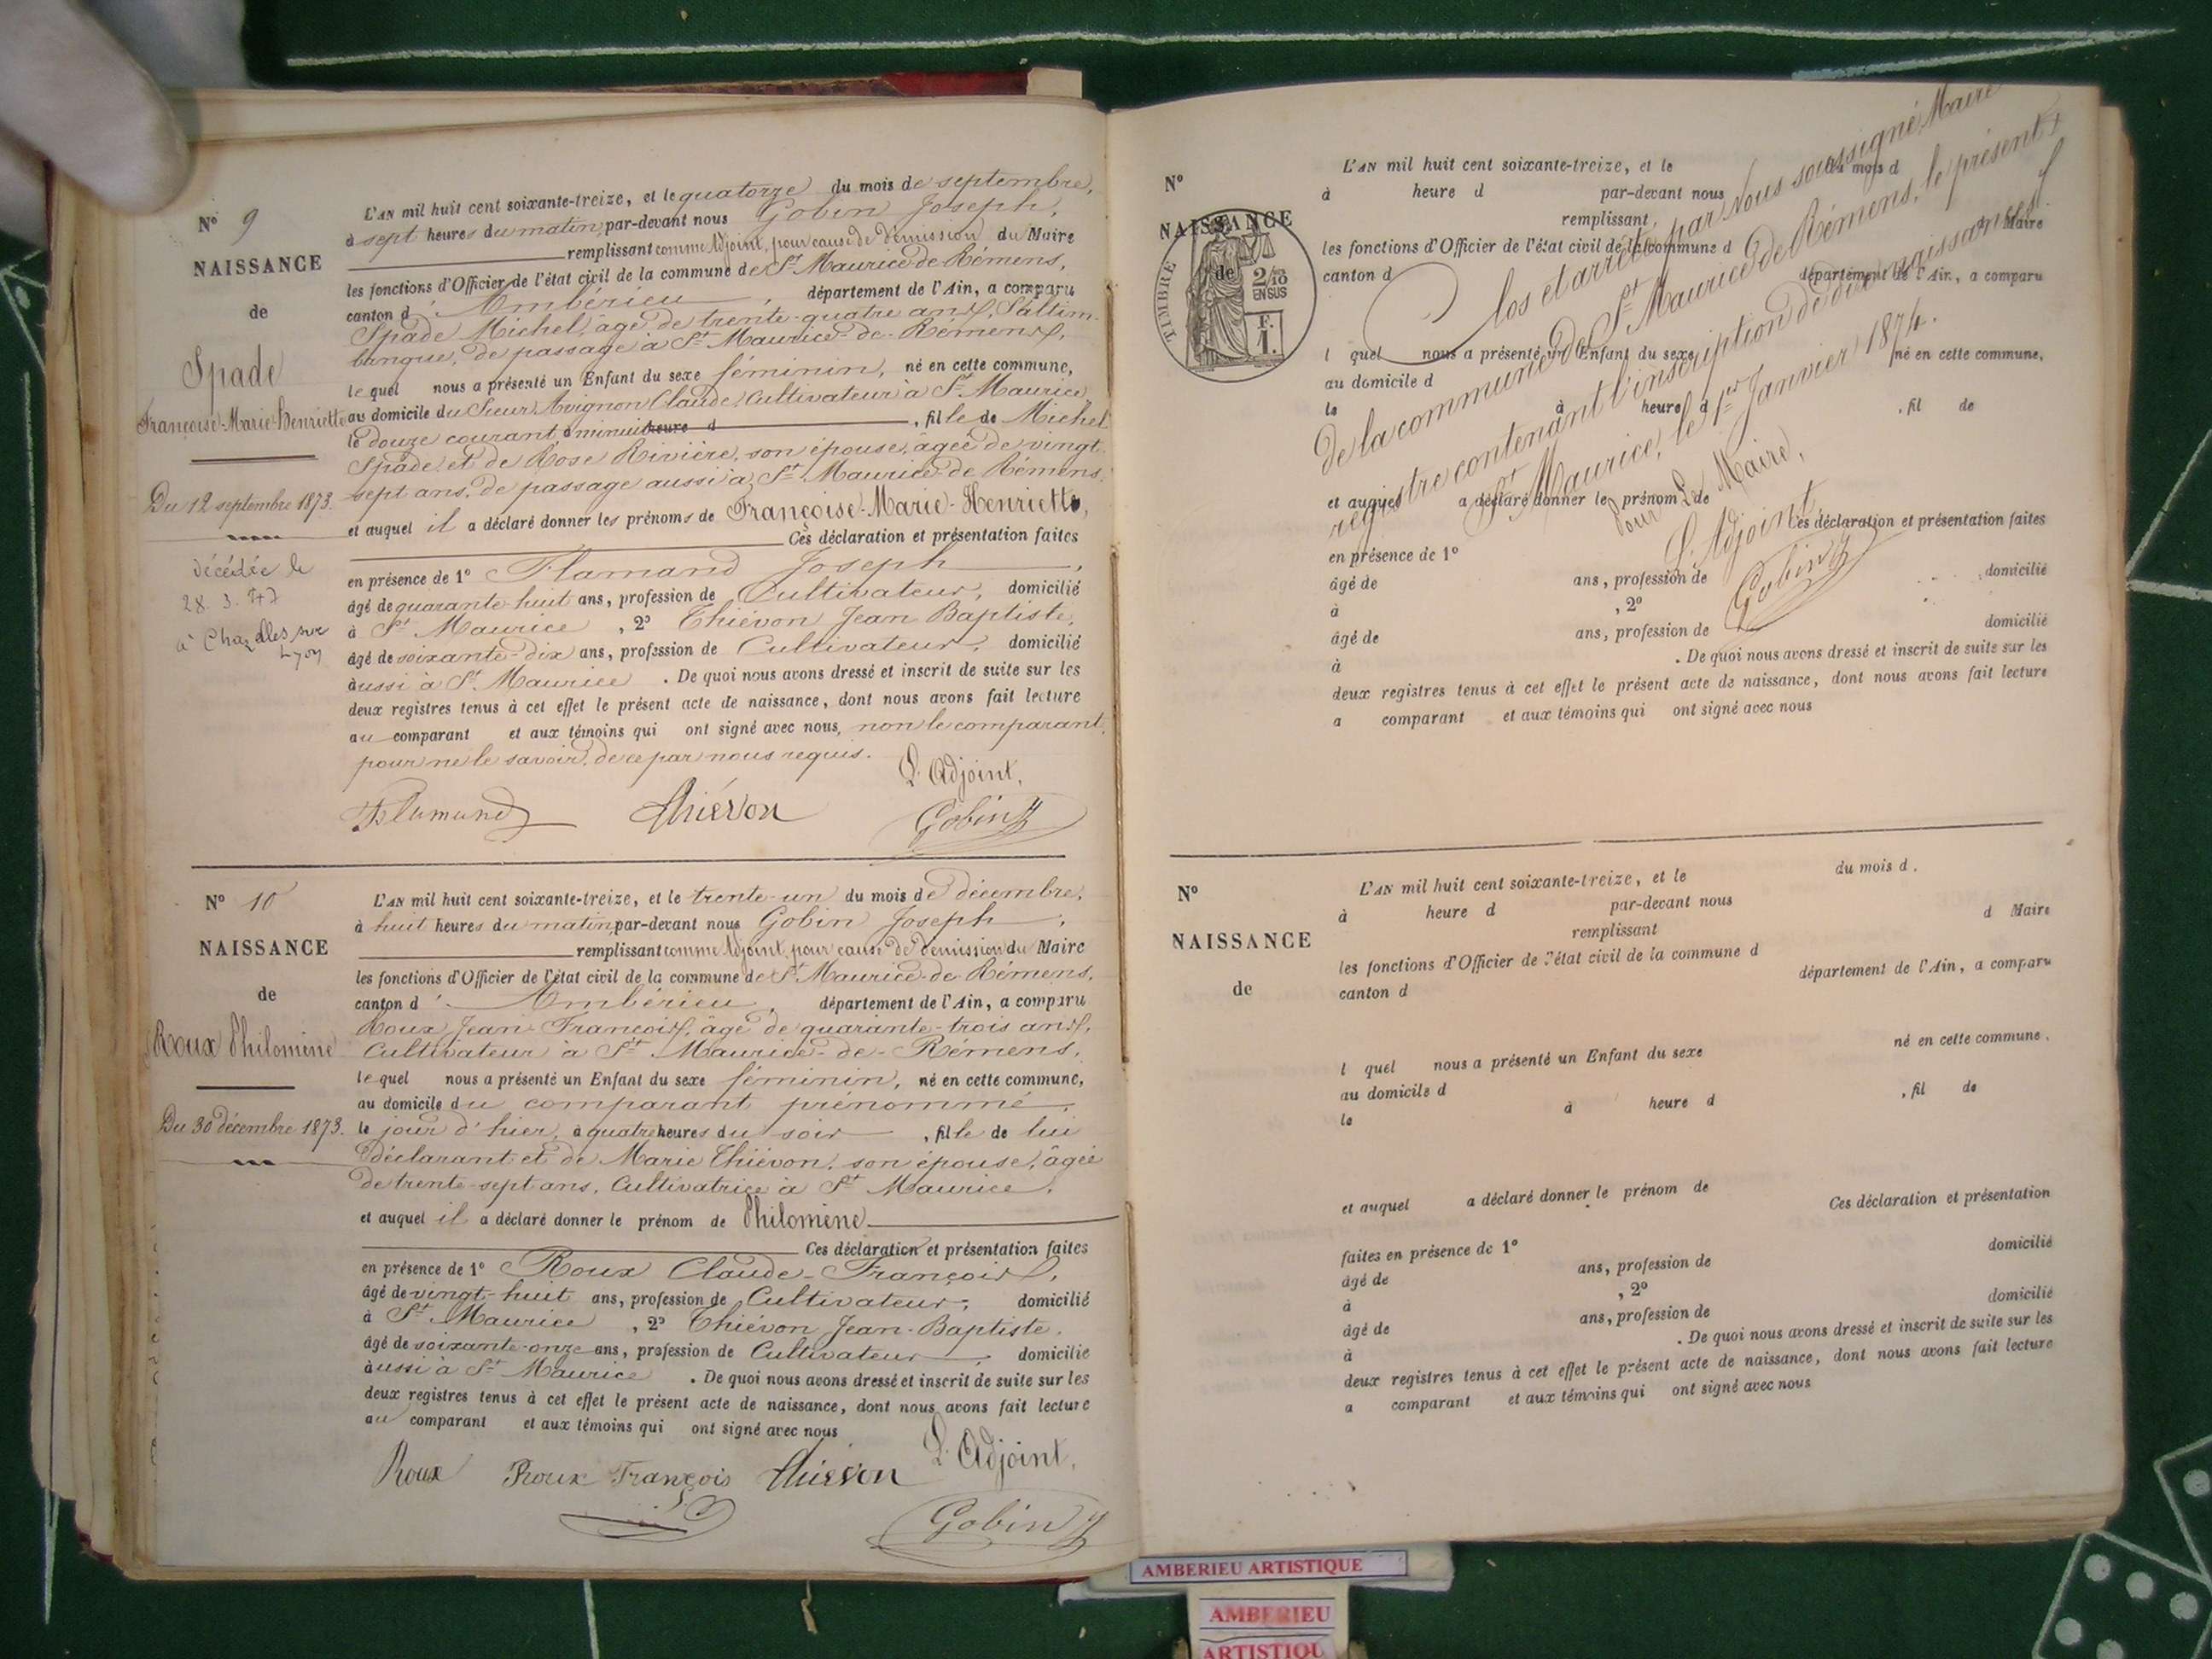 N° 9
NAISSANCE
de
Spade
Françoise-Marie-Henriette
Du 12 septembre 1873.
décédée le
28. 3.
à Chazelles sur
Lyon
L'AN mil huit cent soixante-treize, et le quatorze du mois de septembre,
à sept heures du matin, par-devant nous Gobin Joseph,
remplissant comme Adjoint, pour cause de démission du Maire
les fonctions d'Officier de l'état civil de la commune de St Maurice de Rémens,
canton d'Ambérieu, département de l'Ain, a comparu
Spade Michel, âgé de trente-quatre ans, Saltim-
banque, de passage à St Maurice-de-Rémens,
lequel nous a présenté un Enfant du sexe féminin, né en cette commune,
au domicile du Sieur Avignon Claude, Cultivateur à St Maurice,
le douze courant, à minuit heure d , fille de Michel
Spade et de Rose Rivière, son épouse, âgée de vingt-
sept ans, de passage aussi à St Maurice-de Rémens.
et auquel il a déclaré donner les prénoms de Françoise-Marie-Henriette,
Ces déclaration et présentation faites
en présence de 1° Flamand Joseph,
âgé de quarante-huit ans, profession de Cultivateur, domicilié
à St Maurice, 2° Thiévon Jean Baptiste,
âgé de soixante-dix ans, profession de Cultivateur, domicilié
aussi à St Maurice. De quoi nous avons dressé et inscrit de suite sur les
deux registres tenus à cet effet le présent acte de naissance, dont nous avons fait lecture
au comparant et aux témoins qui ont signé avec nous, non le comparant,
pour ne le savoir, de ce par nous requis.
L'Adjoint,
Flamand Thiévon Gobin J
N° 10
NAISSANCE
de
Roux Philomène
Du 30 décembre 1873.
L'AN mil huit cent soixante-treize, et le trente-un du mois de décembre,
à huit heures du matin, par-devant nous Gobin Joseph,
remplissant comme Adjoint, pour cause de démission du Maire
les fonctions d'Officier de l'état civil de la commune de St Maurice-de-Rémens,
canton d'Ambérieu, département de l'Ain, a comparu
Roux Jean-François, âgé de quarante-trois ans,
Cultivateur à St Maurice-de-Rémens,
lequel nous a présenté un Enfant du sexe féminin, né en cette commune,
au domicile du comparant prénommé,
le jour d'hier, à quatre heures du soir , fille de lui
déclarant et de Marie Thiévon, son épouse, âgée
de trente-sept ans, Cultivatrice à St Maurice,
et auquel il a déclaré donner le prénom de Philomène
Ces déclaration et présentation faites
en présence de 1° Roux Claude-François,
âgé de vingt-huit ans, profession de Cultivateur, domicilié
à St Maurice, 2° Thiévon Jean-Baptiste,
âgé de soixante-onze ans, profession de Cultivateur, domicilié
aussi à St Maurice. De quoi nous avons dressé et inscrit de suite sur les
deux registres tenus à cet effet le présent acte de naissance, dont nous avons fait lecture
au comparant et aux témoins qui ont signé avec nous
L'Adjoint,
Roux Roux François Thiévon
Gobin J
N°
NAISSANCE
de
TIMBRE
2/10
EN SUS
F.
1.
L'AN mil huit cent soixante-treize, et le du mois d
à heure d par-devant nous
remplissant
d Maire
les fonctions d'Officier de l'état civil de la commune d
canton d département de l'Ain, a comparu
l quel nous a présenté un Enfant du sexe né en cette commune,
au domicile d
le à heure d , fil de
et auquel a déclaré donner le prénom de
Ces déclaration et présentation faites
en présence de 1°
âgé de ans, profession de domicilié
à , 2°
âgé de ans, profession de domicilié
à . De quoi nous avons dressé et inscrit de suite sur les
deux registres tenus à cet effet le présent acte de naissance, dont nous avons fait lecture
a comparant et aux témoins qui ont signé avec nous
Clos et arrêté par Nous soussigné, Maire
de la commune de St Maurice de Rémens, le présent
registre contenant l'inscription de dix naissances.
St Maurice, le 1er Janvier 1874.
Pour Le Maire,
L'Adjoint
Gobin J
N°
NAISSANCE
de
L'AN mil huit cent soixante-treize, et le du mois d
à heure d par-devant nous
remplissant d Maire
les fonctions d'Officier de l'état civil de la commune d
canton d département de l'Ain, a comparu
l quel nous a présenté un Enfant du sexe né en cette commune,
au domicile d
le à heure d , fil de
et auquel a déclaré donner le prénom de
Ces déclaration et présentation
faites en présence de 1° domicilié
âgé de ans, profession de
à , 2°
âgé de ans, profession de domicilié
à . De quoi nous avons dressé et inscrit de suite sur les
deux registres tenus à cet effet le présent acte de naissance, dont nous avons fait lecture
a comparant et aux témoins qui ont signé avec nous
AMBERIEU ARTISTIQUE
AMBERIEU
ARTISTIQU